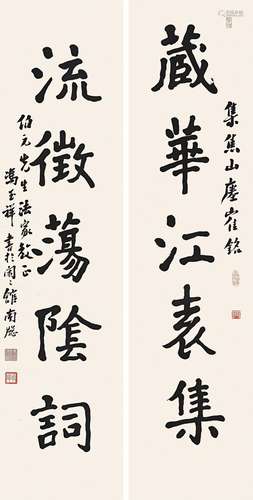 集焦山瘞寉銘
藏華江表集
流徵蕩陰詞
伯元先生法家教正
馮玉祥書於